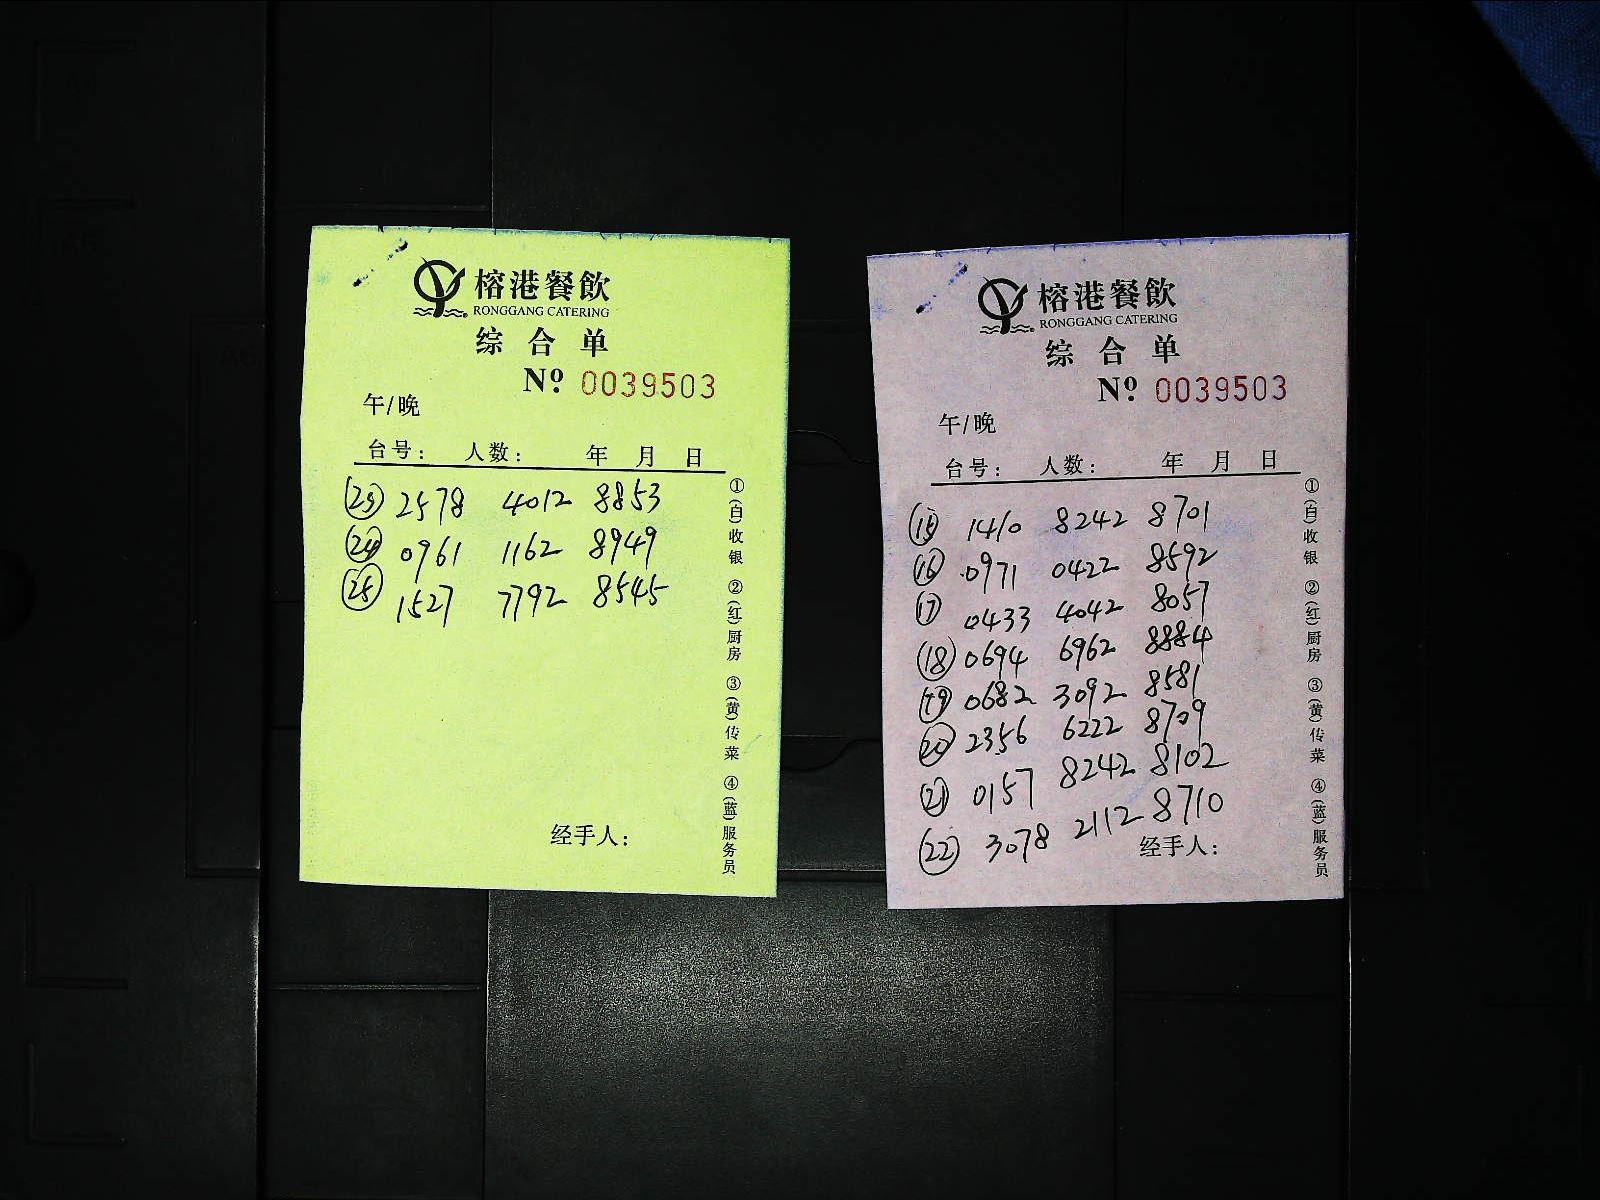 榕港餐飲
RONGGANG CATERING
综合单
Nº 0039503
午/晚
台号: 人数: 年 月 日
㉓ 2578 4012 8853
㉔ 0961 1162 8949
㉕ 1527 7792 8545
经手人:
①(白)收银 ②(红)厨房 ③(黄)传菜 ④(蓝)服务员
榕港餐飲
RONGGANG CATERING
综合单
Nº 0039503
午/晚
台号: 人数: 年 月 日
⑮ 1410 8242 8701
⑯ 0971 0422 8592
⑰ 0433 4042 8057
⑱ 0694 6962 8884
⑲ 0682 3092 8581
⑳ 2356 6222 8709
㉑ 0157 8242 8102
㉒ 3078 2112 8710
经手人:
①(白)收银 ②(红)厨房 ③(黄)传菜 ④(蓝)服务员